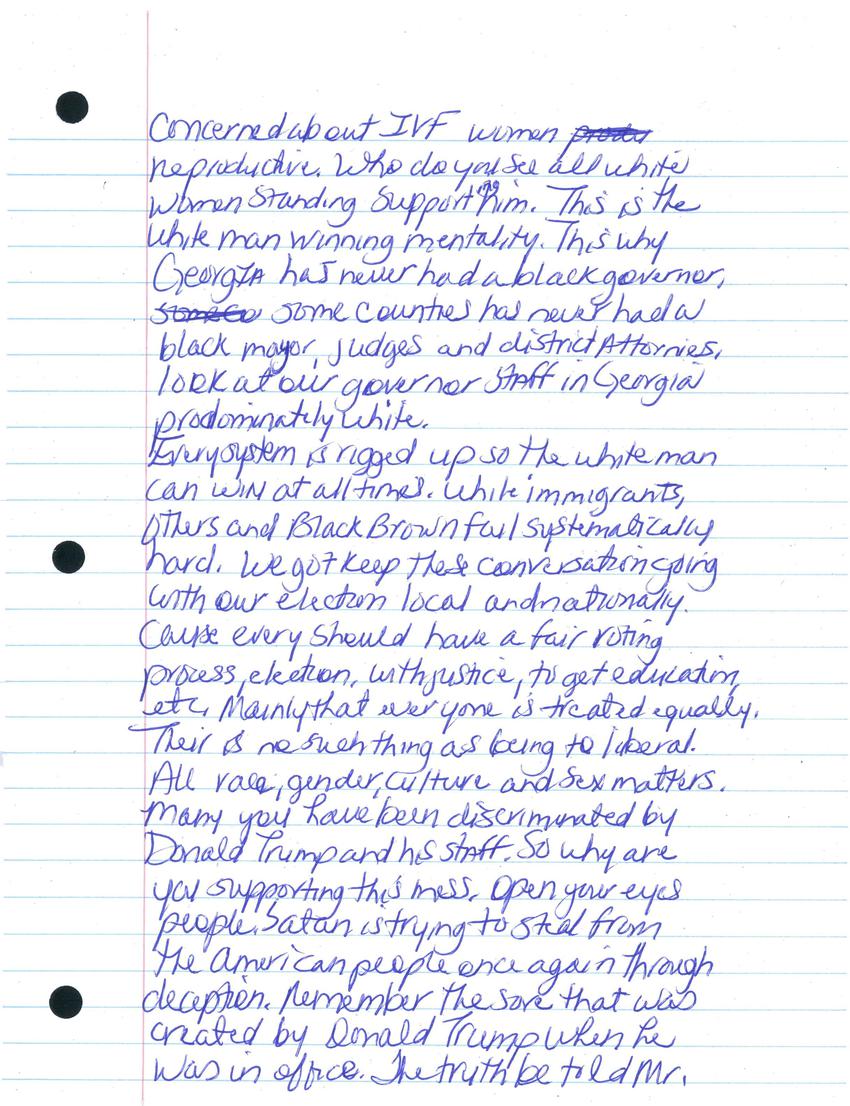 Concerned about IVF women
reproductive. Who do you see all white
women standing supporting him. This is the
white man winning mentality. This why
Georgia has never had a black governor,
some counties has never had a
black mayor, judges and district Attornies,
look at our governor staff in Georgia
prodominately white.
Every system is rigged up so the white man
can win at all times. While immigrants,
others and Black Brown fail systematically
hard. We got keep these conversation going
with our election local and nationally.
Cause every should have a fair voting
process, election, with justice, to get education,
etc. Mainly that everyone is treated equally.
Their is no such thing as being to liberal.
All race, gender, culture and sex matters.
Many you have been discriminated by
Donald Trump and his staff. So why are
you supporting this mess. Open your eyes
people. Satan is trying to steal from
the American people once again through
deception. Remember the sore that was
created by Donald Trump when he
was in office. The truth be told Mr.